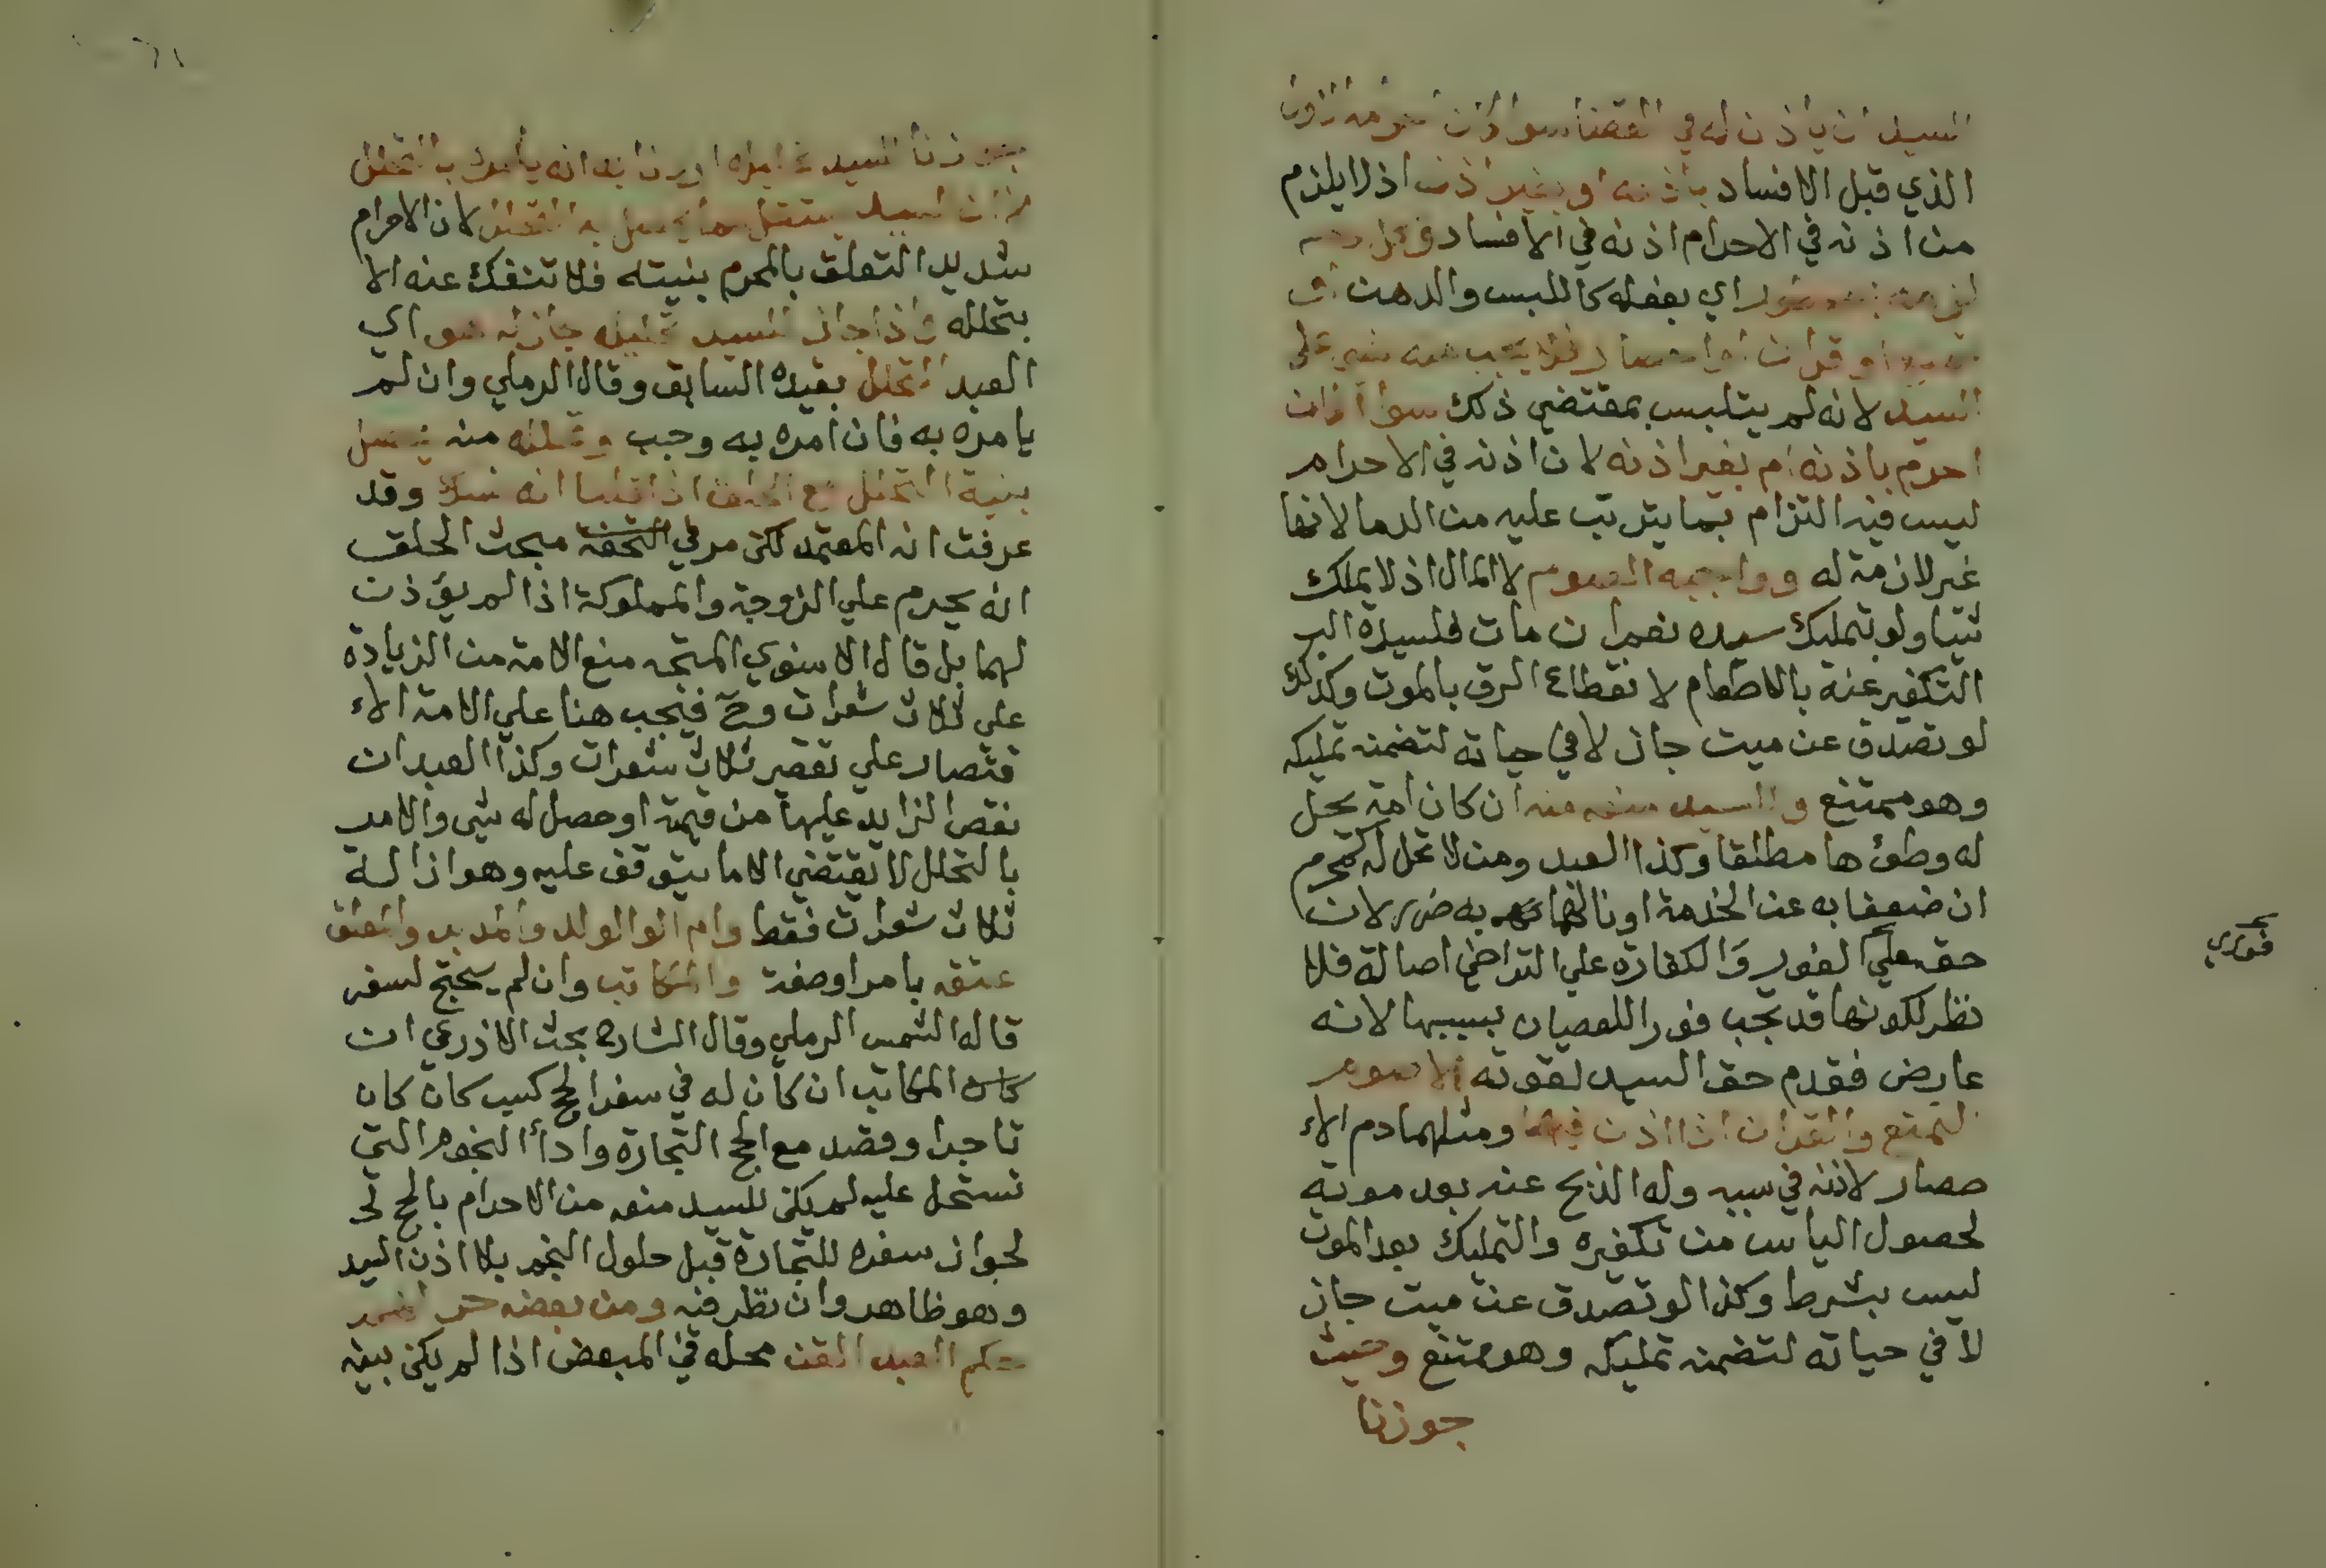 السيد ان ياذن له في القضا سوا كان احرامه الاول
الذي قبل الافساد باذنه او بغير اذنه اذ لا يلزم
من اذنه في الاحرام اذنه في الافساد وكل دم
لزمه بمحظور اي بفعله كاللبس والدهن او
تمتع او قران او احصار لا يجب منه شي على
السيد لانه لم يتلبس بمقتضي ذلك سوا كان
احرم باذنه ام بغير اذنه لان اذنه في الاحرام
ليس فيه التزام بما يترتب عليه من الدما لانها
غير لازمة له وواجبه الصوم لا المال اذ لا يملك
شيا ولو بتمليك سيده نعم ان مات فلسيده
التكفير عنه بالاطعام لانقطاع الرق بالموت وكذلك
لو تصدق عن ميت جاز لا في حياته لتضمنه تمليكه
وهو ممتنع وللسيد منعه منه ان كان امة يحل
له وطؤها مطلقا وكذا العبد ومن لا تحل له كمحرم
ان ضعفا به عن الخدمة او نالهما به ضرر لان
حقه علي الفور والكفارة علي التراخي اصالة فلا
نظر لكونها قد تجب فورا للعصيان بسببها لانه
عارض فقدم حق السيد لقوته الا صوم
التمتع والقران اذا اذن فيهما ومثلهما دم الا
حصار لاذنه في سببه وله الذبح عنه بعد موته
لحصول الياس من تكفيره والتمليك بعد الموت
ليس بشرط وكذا لو تصدق عن ميت جاز
لا في حياته لتضمنه تمليكه وهو ممتنع وحيث
جوزنا
فوري
جوزنا للسيد تحليله اردنا به انه يامره بالتحلل
لا ان السيد يستقل بما يحصل به التحلل لان الاحرام
شديد التعلق بالمحرم بنيته فلا تنفك عنه الا
بتحلله واذا جاز للسيد تحليله جاز له هو اي
العبد التحلل بقيده السابق وقال الرملي وان لم
يامره به فان امره به وجب وتحلله منه يحصل
بنية التحلل مع الحلق اذا قلنا انه نسك وقد
عرفت انه المعتمد لكن مر في التحفة مبحث الحلق
انه يحرم علي الزوجة والمملوكة اذا لم يؤذن
لهما بل قال الاسنوي المتجه منع الامة من الزيادة
علي ثلاث شعرات وح فيجب هنا علي الامة الا
قتصار علي تقصير ثلاث شعرات وكذا العبد ان
نقص الزايد عليها من قيمته او حصل له شي والامر
بالتحلل لا يقتضي الا ما يتوقف عليه وهو ازالة
ثلاث شعرات فقط وام الو الولد والمدبر والمعلق
عتقه بامر او صفة والمكاتب وان لم يحتج لسفر
قاله الشمس الرملي وقال الشارح بحث الاذرعي ان
كان المكاتب ان كان له في سفر الحج كسب كان كان
تاجرا وقصد مع الحج التجارة واداء النجوم التي
تستحل عليه لم يكن للسيد منعه من الاحرام بالحج
لجواز سفره للتجارة قبل حلول النجم بلا اذن السيد
وهو ظاهر وان نظر فيه ومن بعضه حر
حكم العبد القن محله في المبعض اذا لم يكن بينه